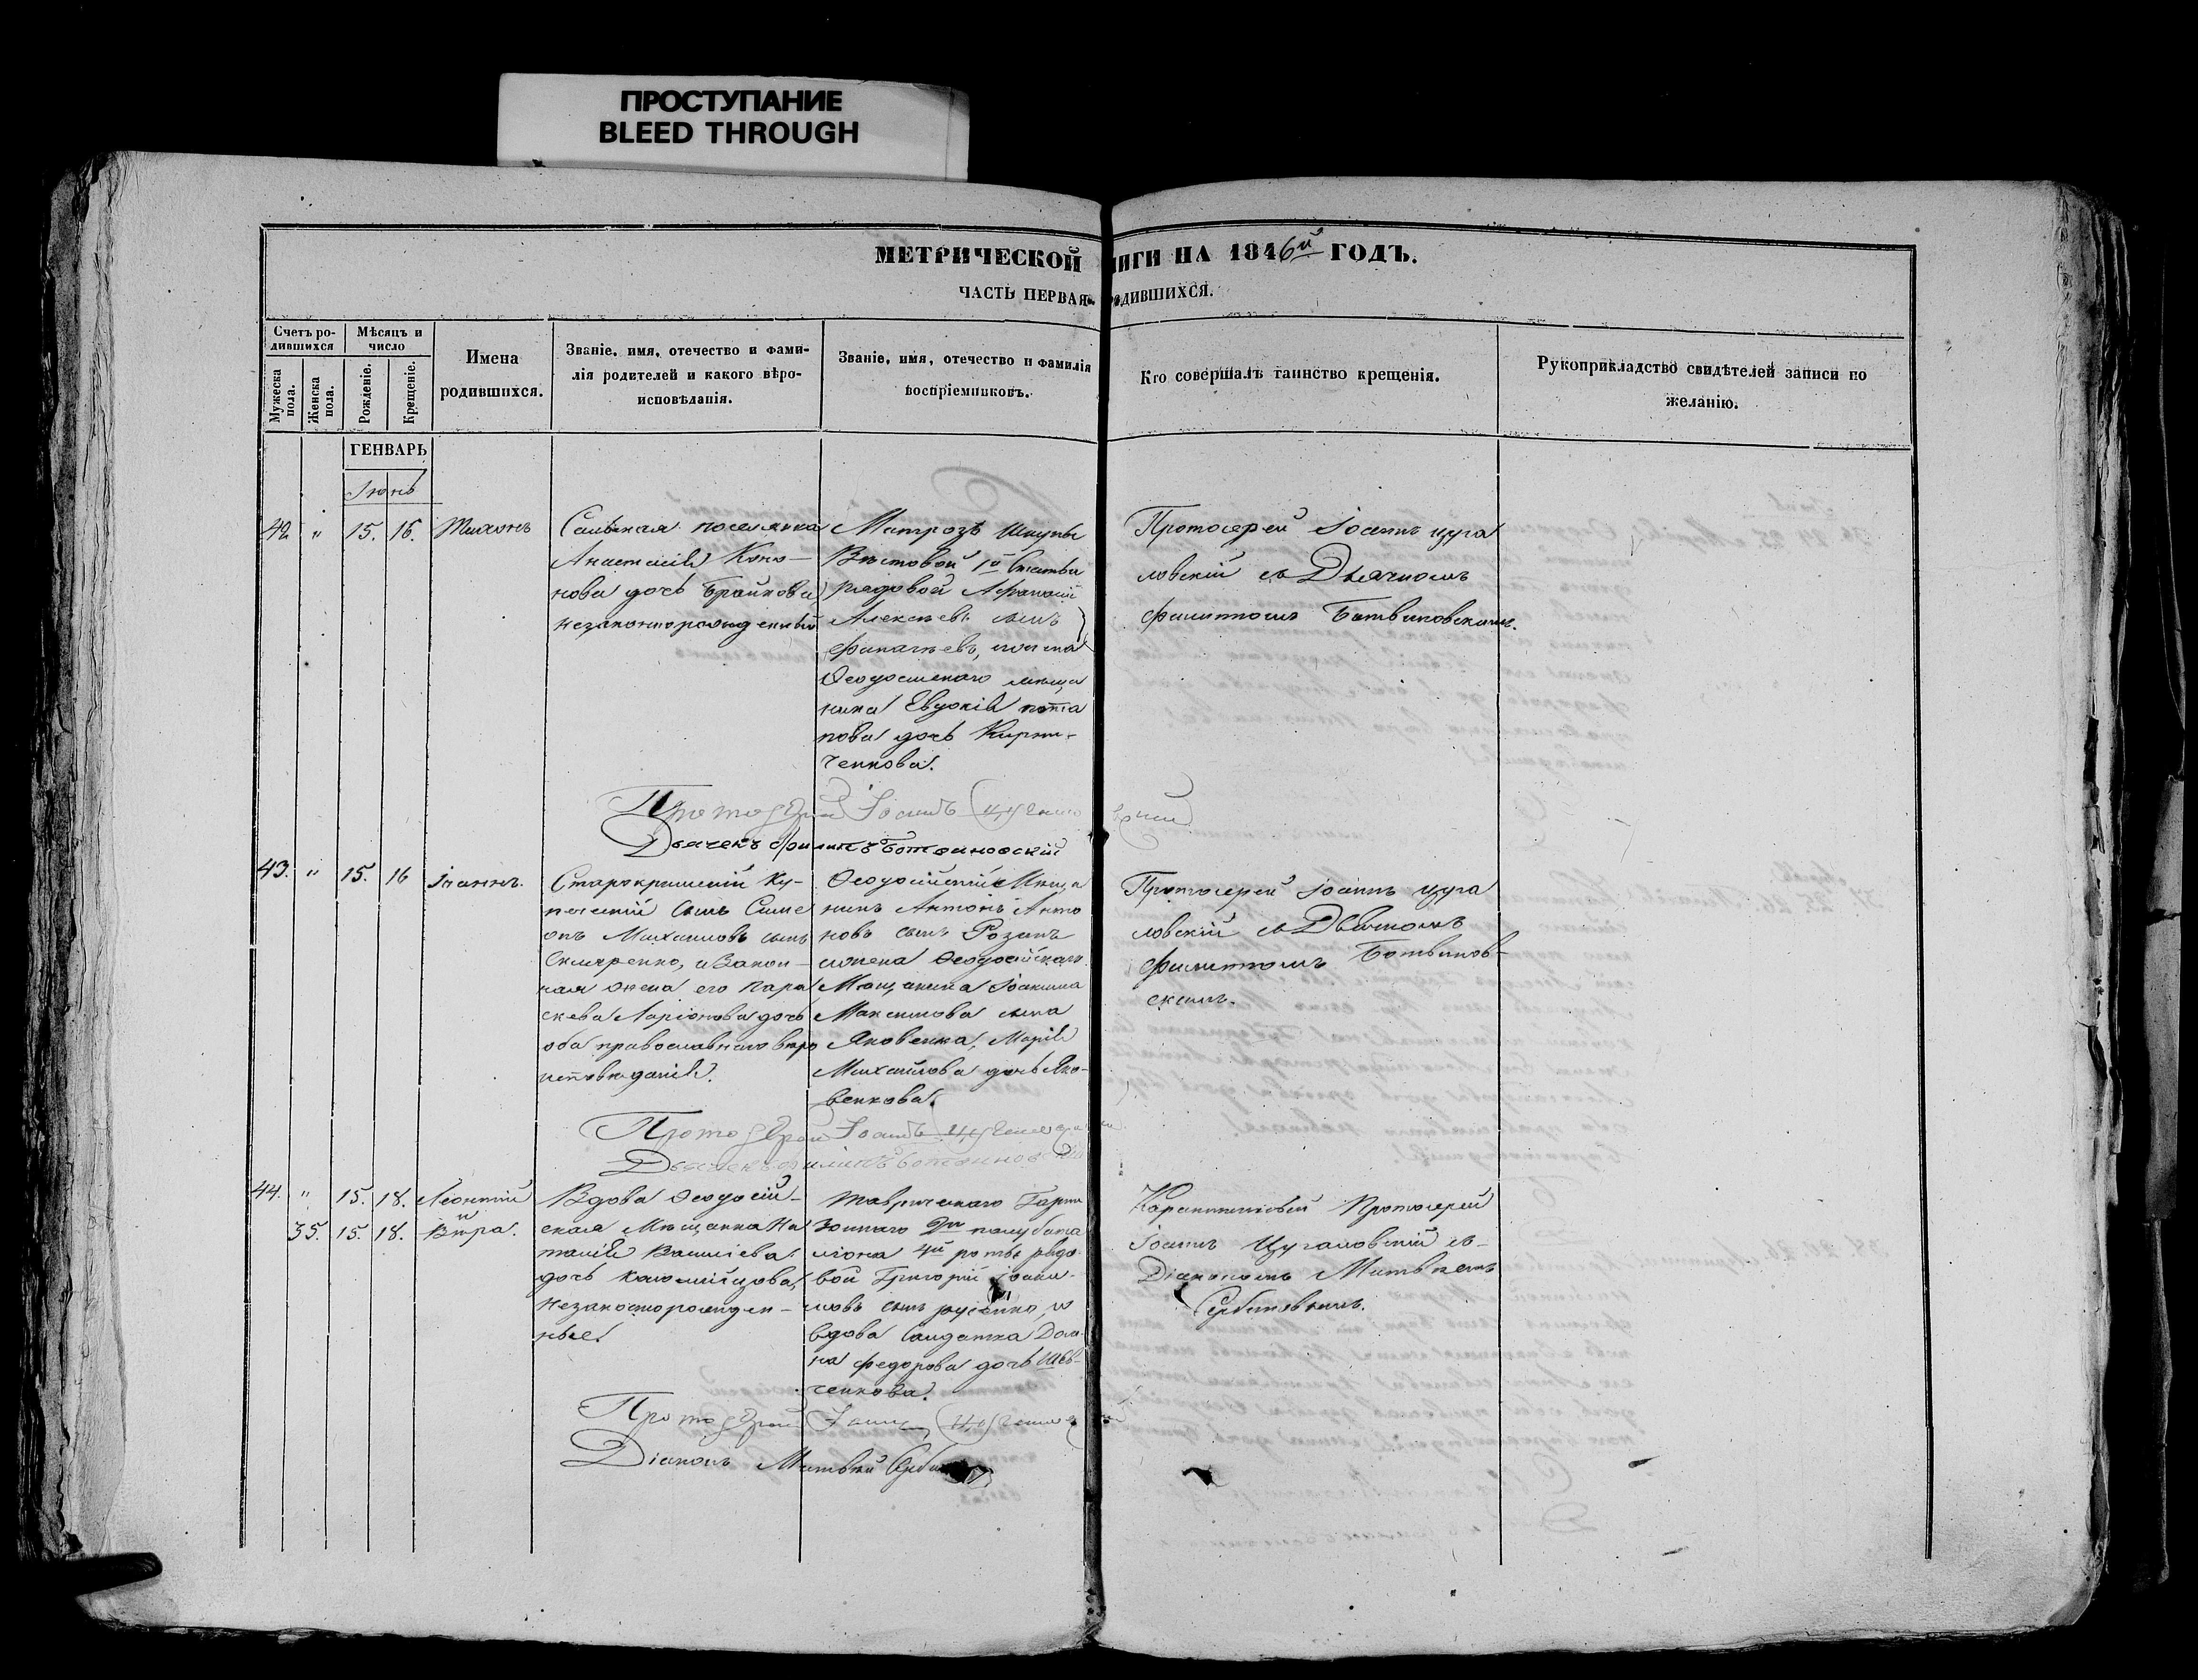 ПРОСТУПАНИЕ
BLEED THROUGH
МЕТРИЧЕСКОЙ ИГИ НА 1846й ГОДЪ.
ЧАСТЬ ПЕРВАЯ. ОДИВШИХСЯ.
Счетъ ро-
дившихся
Мужеска
пола.
Женска
пола.
Мѣсяцъ и
число
Рожденіе.
Крещеніе.
Имена
родившихся.
Званіе, имя, отечество и фами-
лія родителей и какого вѣро-
исповѣданія.
Званіе, имя, отечество и фамилія
воспріемниковъ.
Кто совершалъ таинство крещенія.
Рукоприкладство свидѣтелей записи по
желанію.
ГЕНВАРЬ
Іюнь
42. " 15. 16. Тихонъ
поселянка
Анастасія Коно-
нова дочь Брайкова
незаконнорожденный
Матрозъ Шкуны
Вѣстовой
рядовой
Алексѣевъ сынъ
жена
Ѳеодосійскаго мѣща
нина Евдокія пота
пова дочь Кирпи-
ченкова.
Протоіерей Іоаннъ цуга
ловскій съ Дьячкомъ
филиппомъ Ботвиновскимъ.
Протоіерей Іоаннъ
Дьячекъ филиппъ Ботвиновскій
43. " 15. 16 Іоаннъ.
Старокрымскій Ку-
печескій сынъ Симе
онъ Михаиловъ сынъ
Скляренко, и Закон-
ная жена его Пара
скева Ларіонова дочь
оба православнаго вѣро
исповѣданія.
Ѳеодосійскій Мѣща
нинъ Антонъ Анто
новъ сынъ Розанъ
и жена Ѳеодосійскаго
Мѣщанина Іоакима
Максимова сына
Яковенка, Марія
Михайлова дочь Яко-
венкова.
Протоіерей Іоаннъ цуга
ловскій съ Дьячкомъ
филиппомъ Ботвинов-
скимъ.
Протоіерей Іоаннъ
Дьячекъ филиппъ Ботвиновскій
44. " 15. 18. Леонтій
и
35. 15. 18. Вѣра.
Вдова Ѳеодосій-
ская Мѣщанка На
талія Василіева
дочь Коломійцова,
незаконнорожден-
ные.
Таврическаго Гарни
зоннаго 2го полубата
ліона 4й роты рядо-
вой Григорій Іоаки-
мовъ сынъ и
вдова Солдатка Дом-
на Федорова дочь Шев-
ченкова.
Карантинный Протоіерей
Іоаннъ Цугаловскій съ
Діакономъ Матвѣемъ
Сербиновымъ.
Протоіерей Іоаннъ
Діаконъ Матвѣй